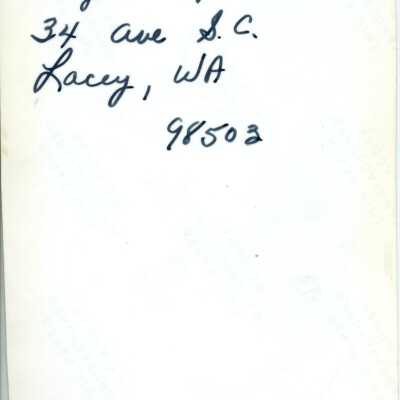 34 Ave S.C.
Lacey, WA
98503